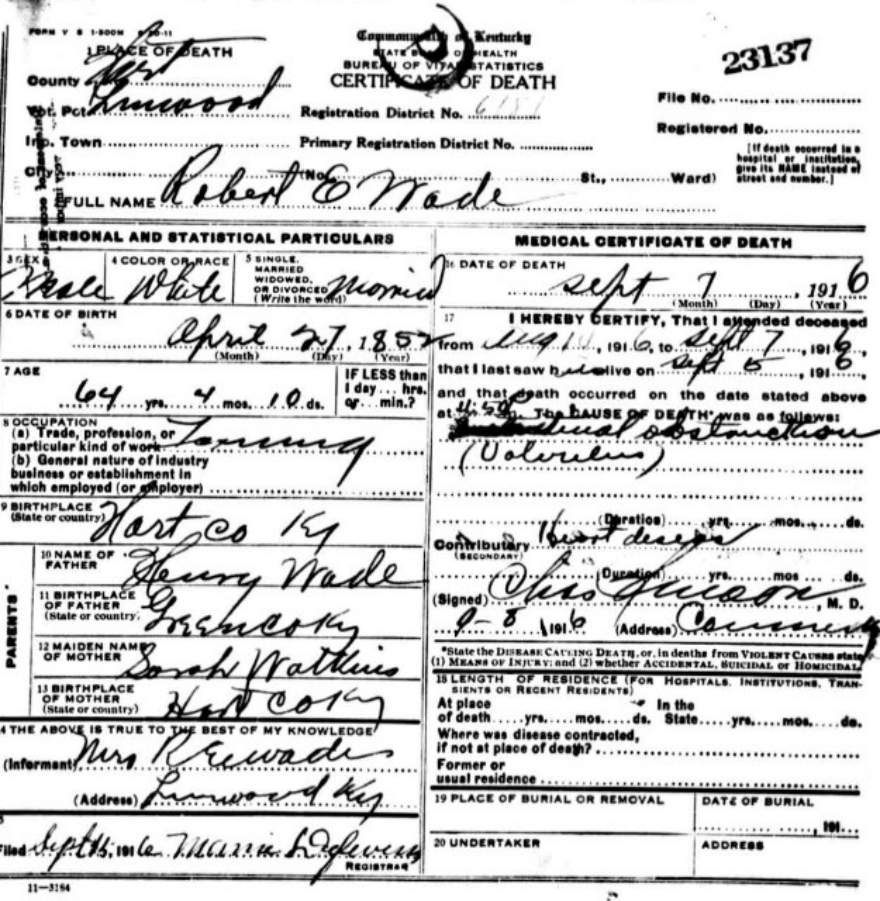 FORM V S 1-500M
Commonwealth of Kentucky
STATE BOARD OF HEALTH
BUREAU OF VITAL STATISTICS
CERTIFICATE OF DEATH
23137
1 PLACE OF DEATH
County Hart
Vot. Pct. Linwood
Registration District No.
File No.
Inc. Town
Primary Registration District No.
Registered No.
City (No. St., Ward)
[If death occurred in a
hospital or institution,
give its NAME instead of
street and number.]
FULL NAME Robert E Wade
PERSONAL AND STATISTICAL PARTICULARS
3 SEX Male
4 COLOR OR RACE White
5 SINGLE,
MARRIED
WIDOWED,
OR DIVORCED Married
(Write the word)
6 DATE OF BIRTH
April 27, 1852
(Month) (Day) (Year)
7 AGE
64 yrs. 4 mos. 10 ds.
IF LESS than
1 day... hrs.
or... min.?
8 OCCUPATION
(a) Trade, profession, or
particular kind of work
(b) General nature of industry
business or establishment in
which employed (or employer)
9 BIRTHPLACE
(State or country) Hart co Ky
PARENTS
10 NAME OF
FATHER Henry Wade
11 BIRTHPLACE
OF FATHER
(State or country) Green co Ky
12 MAIDEN NAME
OF MOTHER Sarah Watkins
13 BIRTHPLACE
OF MOTHER
(State or country) Hart co Ky
14 THE ABOVE IS TRUE TO THE BEST OF MY KNOWLEDGE
(Informant) Mrs R E Wade
(Address) Linwood Ky
Filed Sept 15, 1916
REGISTRAR
11—3184
MEDICAL CERTIFICATE OF DEATH
16 DATE OF DEATH
Sept 7, 1916
(Month) (Day) (Year)
17 I HEREBY CERTIFY, That I attended deceased
from Aug, 1916, to Sept 7, 1916,
that I last saw h alive on Sept 5, 1916,
and that death occurred on the date stated above
at m. The CAUSE OF DEATH* was as follows:
obstruction
(Volvulus)
(Duration) yrs. mos. ds.
Contributory Heart disease
(SECONDARY)
(Duration) yrs. mos. ds.
(Signed) Chas, M. D.
9-8, 1916 (Address)
*State the DISEASE CAUSING DEATH, or, in deaths from VIOLENT CAUSES state
(1) MEANS OF INJURY; and (2) whether ACCIDENTAL, SUICIDAL or HOMICIDAL
18 LENGTH OF RESIDENCE (FOR HOSPITALS, INSTITUTIONS, TRAN-
SIENTS OR RECENT RESIDENTS)
At place In the
of death yrs. mos. ds. State yrs. mos. ds.
Where was disease contracted,
if not at place of death?
Former or
usual residence
19 PLACE OF BURIAL OR REMOVAL
DATE OF BURIAL
, 191
20 UNDERTAKER
ADDRESS